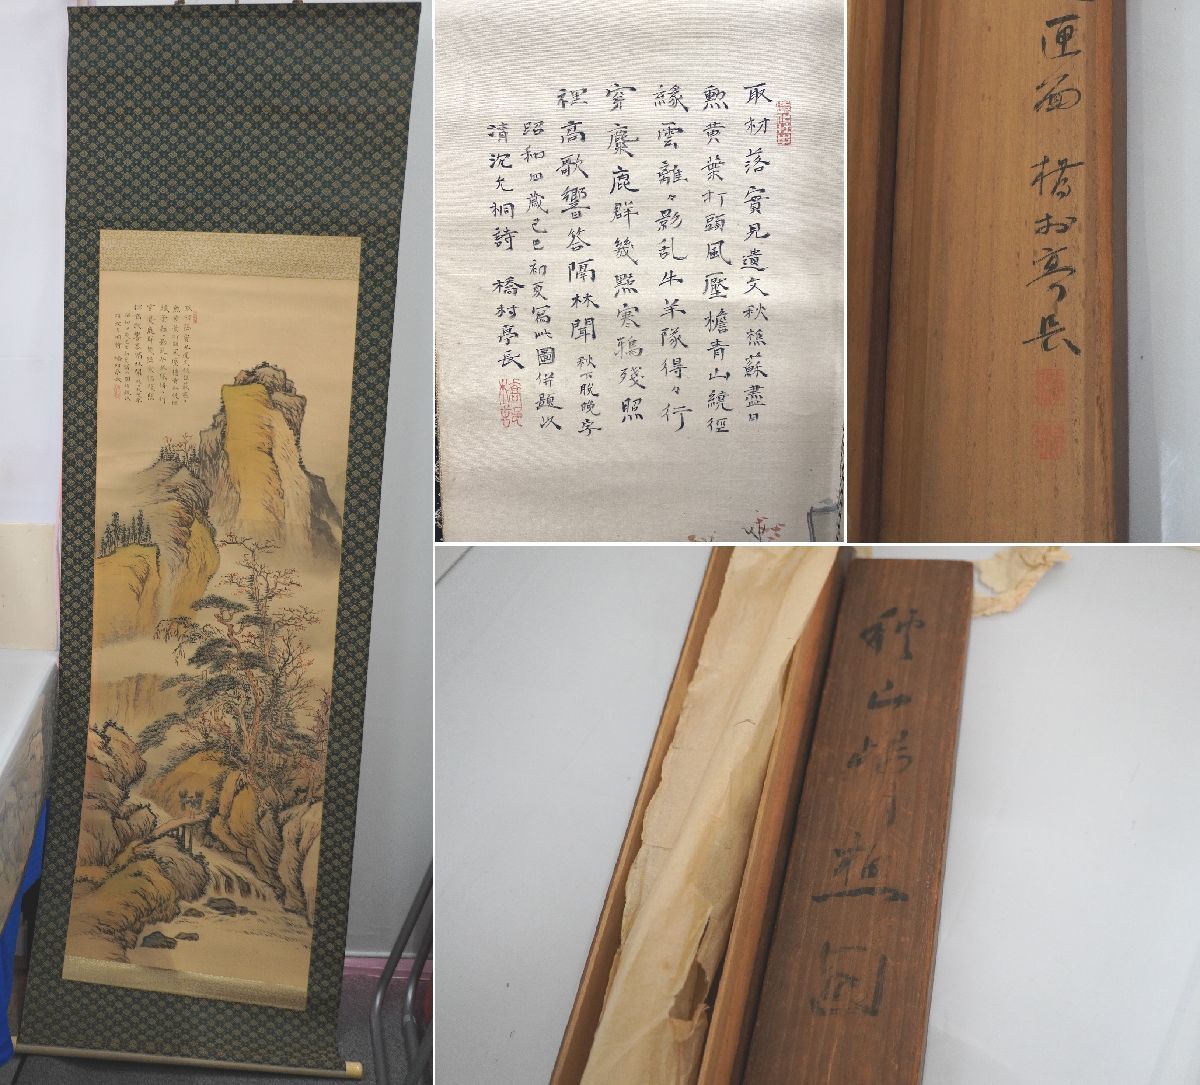 取材落實見遺文秋蕪蘇盡日
黄葉打頭風壓檐青山繞徑
緣雲離々影乱牛羊隊得々行
穿麋鹿群幾點寒鴉殘照
裡高歌響答隔林聞 秋下脱晚字
昭和四歳己巳初夏寫此圖併題以
清沈允桐詩 橋村亭長
匣面 橋村亭長
山 樵圖